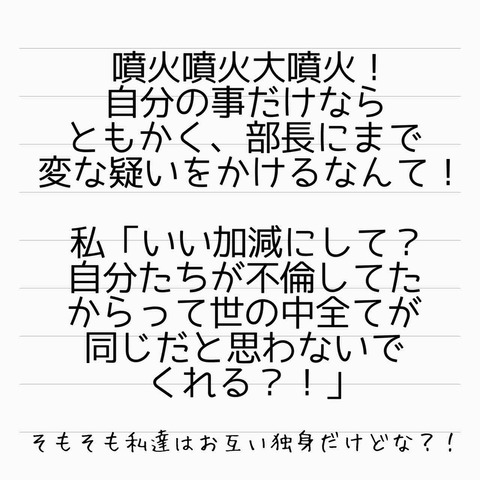 噴火噴火大噴火！
自分の事だけなら
ともかく、部長にまで
変な疑いをかけるなんて！
私「いい加減にして？
自分たちが不倫してた
からって世の中全てが
同じだと思わないで
くれる？！」
そもそも私達はお互い独身だけどな？！